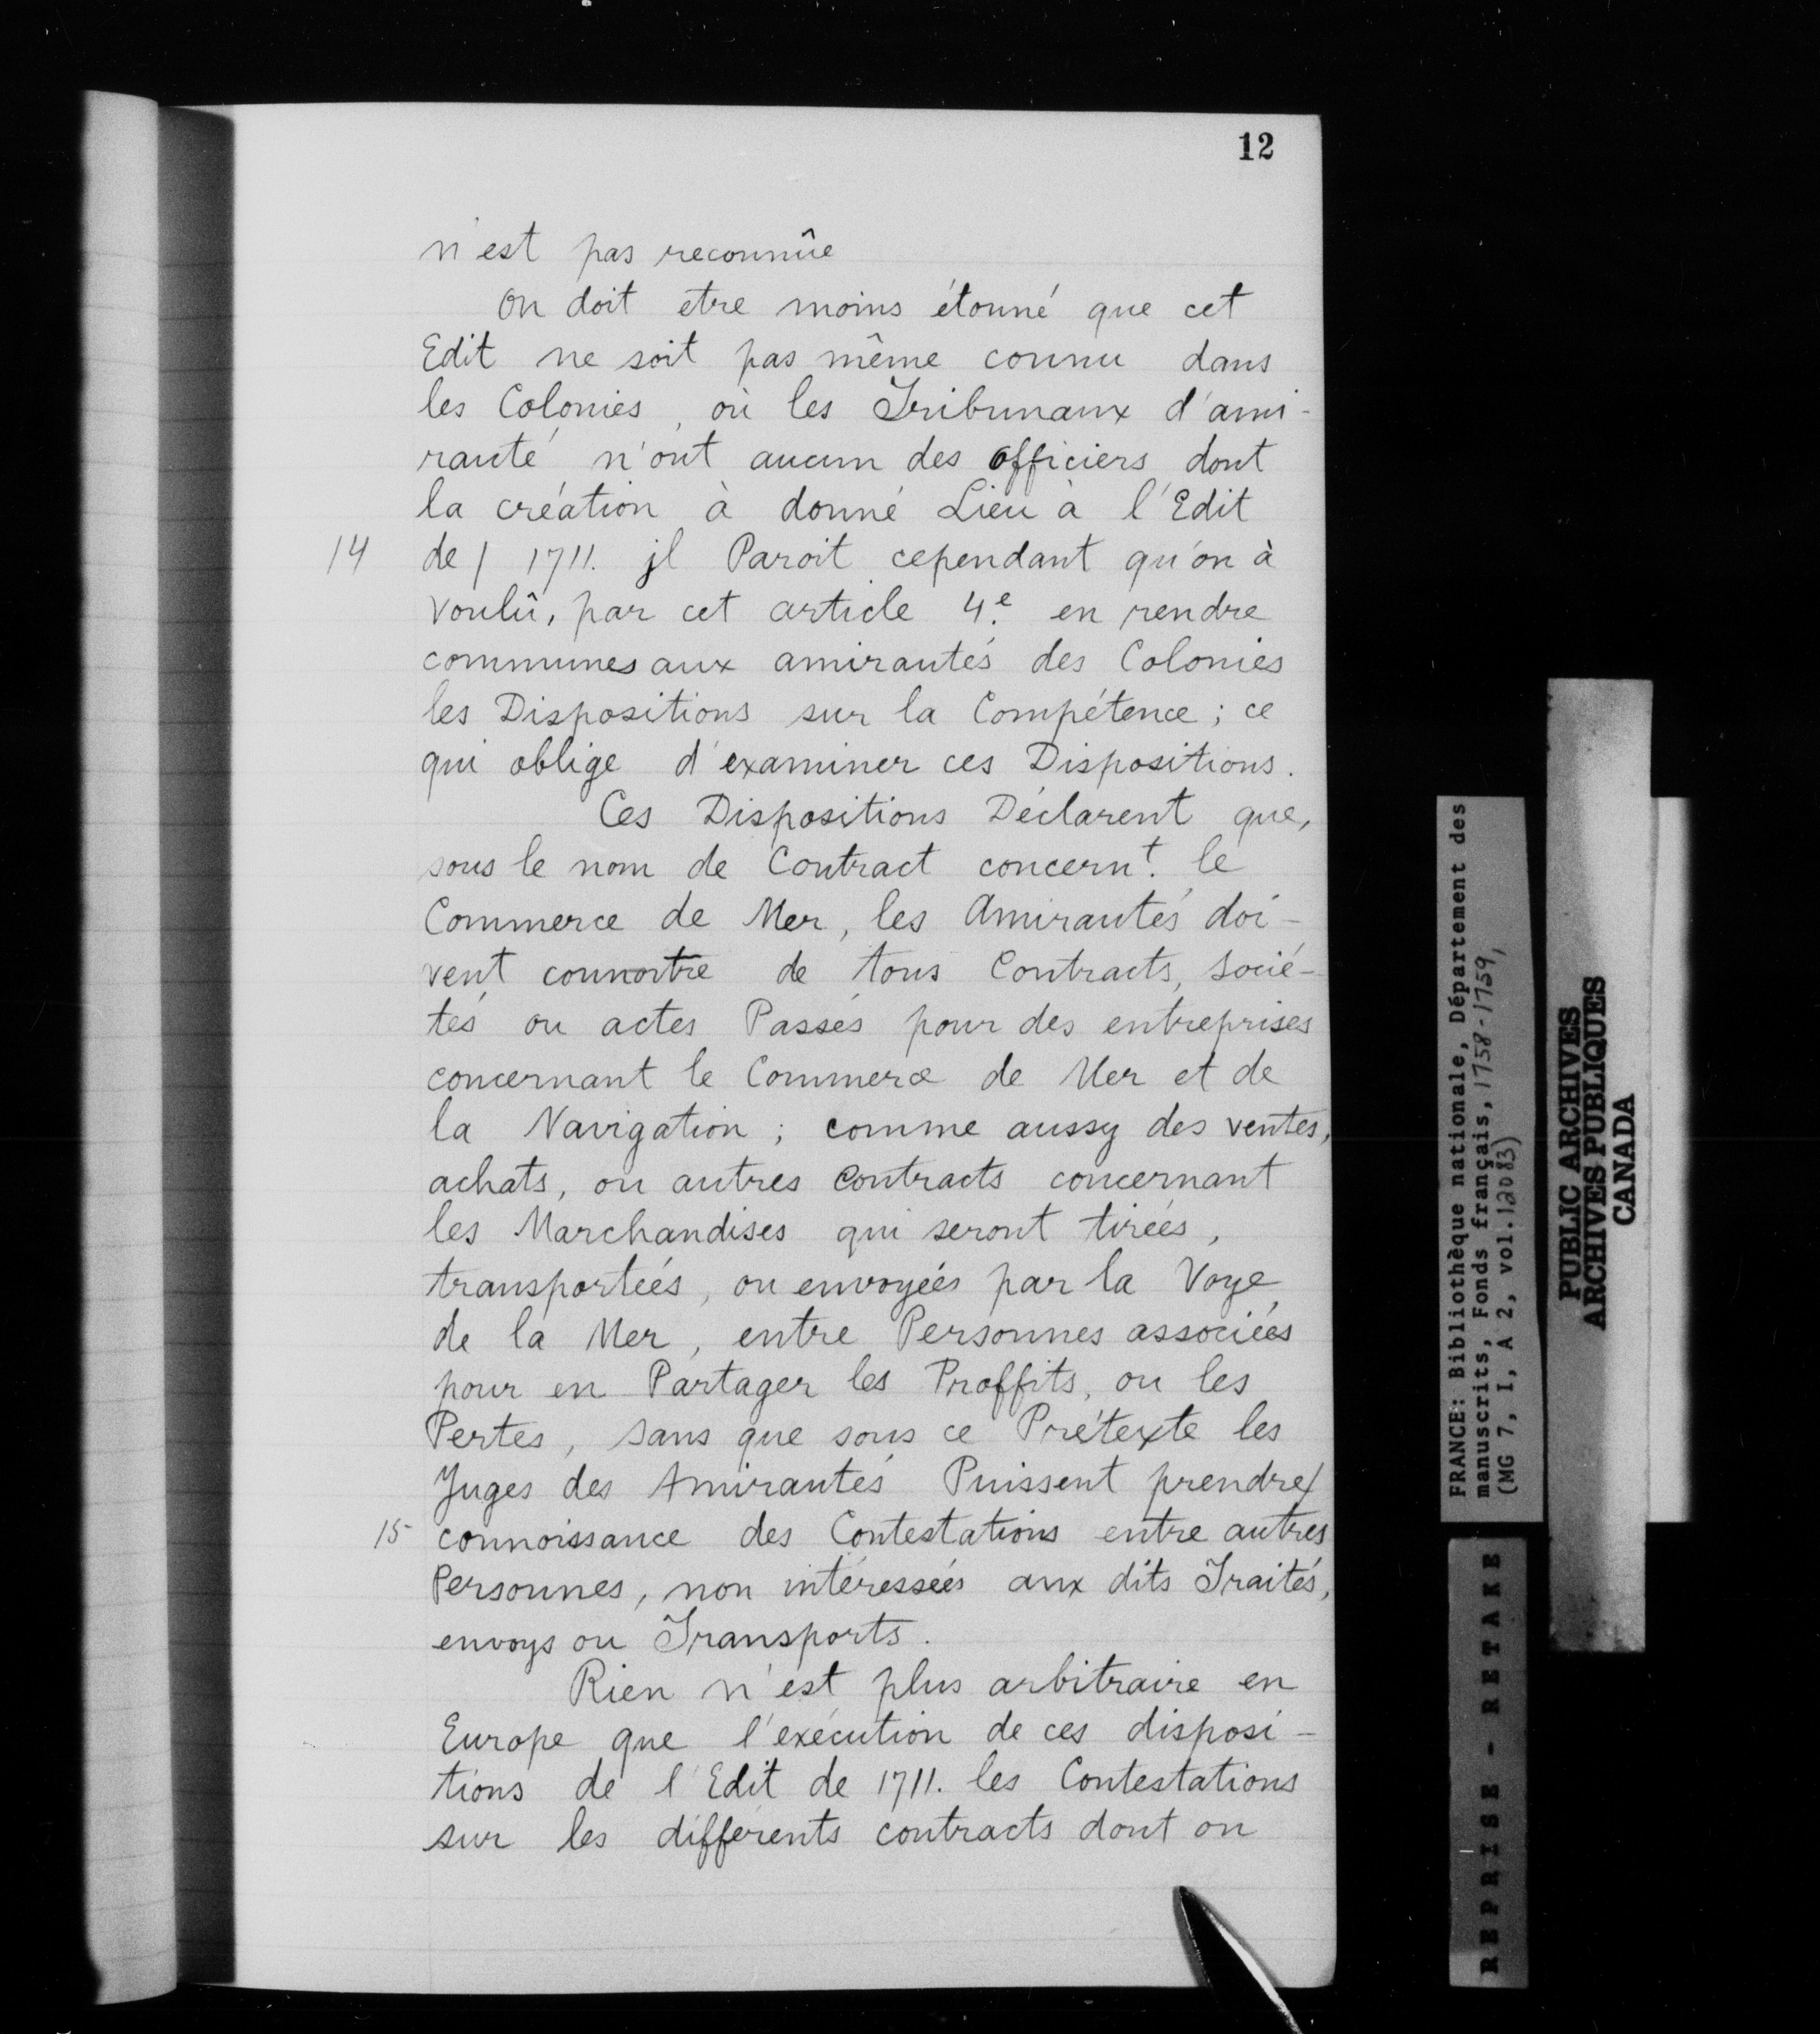 12
n'est pas reconnûe
On doit etre moins étonné que cet
Edit ne soit pas même connu dans
les Colonies, où les Tribunaux d'ami-
rauté n'ont aucun des officiers dont
la création à donné Lieu à l'Edit
14 de / 1711. jl Paroit cependant qu'on à
voulû, par cet article 4.e en rendre
communes aux amirautés des Colonies
les Dispositions sur la Compétence; ce
qui oblige d'examiner ces Dispositions.
Ces Dispositions Déclarent que,
sous le nom de Contract concern.t le
Commerce de Mer, les Amirautés doi-
vent connoitre de tous Contracts, socié-
tés ou actes Passés pour des entreprises
concernant le Commerce de Mer et de
la Navigation; comme aussy des ventes,
achats, ou autres contracts concernant
les Marchandises qui seront tirées,
transportées, ou envoyées par la Voye
de la Mer, entre Personnes associées
pour en Partager les Proffits, ou les
Pertes, sans que sous ce Prétexte les
Juges des Amirautés Puissent prendre/
15 connoissance des Contestations entre autres
Personnes, non intéressées aux dits Traités,
envoys ou Transports.
Rien n'est plus arbitraire en
Europe que l'exécution de ces disposi-
tions de l'Edit de 1711. les Contestations
sur les différents contracts dont on
FRANCE: Bibliothèque nationale, Département des
manuscrits, Fonds français, 1758-1759,
(MG 7, I, A 2, vol. 12083)
PUBLIC ARCHIVES
ARCHIVES PUBLIQUES
CANADA
REPRISE - RETAKE